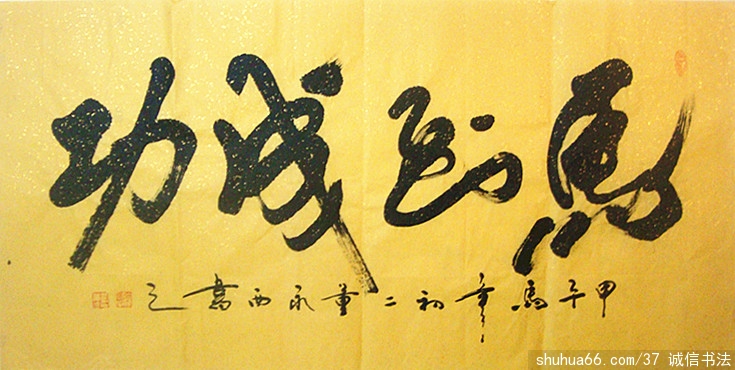 馬到成功
甲午馬年初二董西書之
shuhua66.com/37 诚信书法